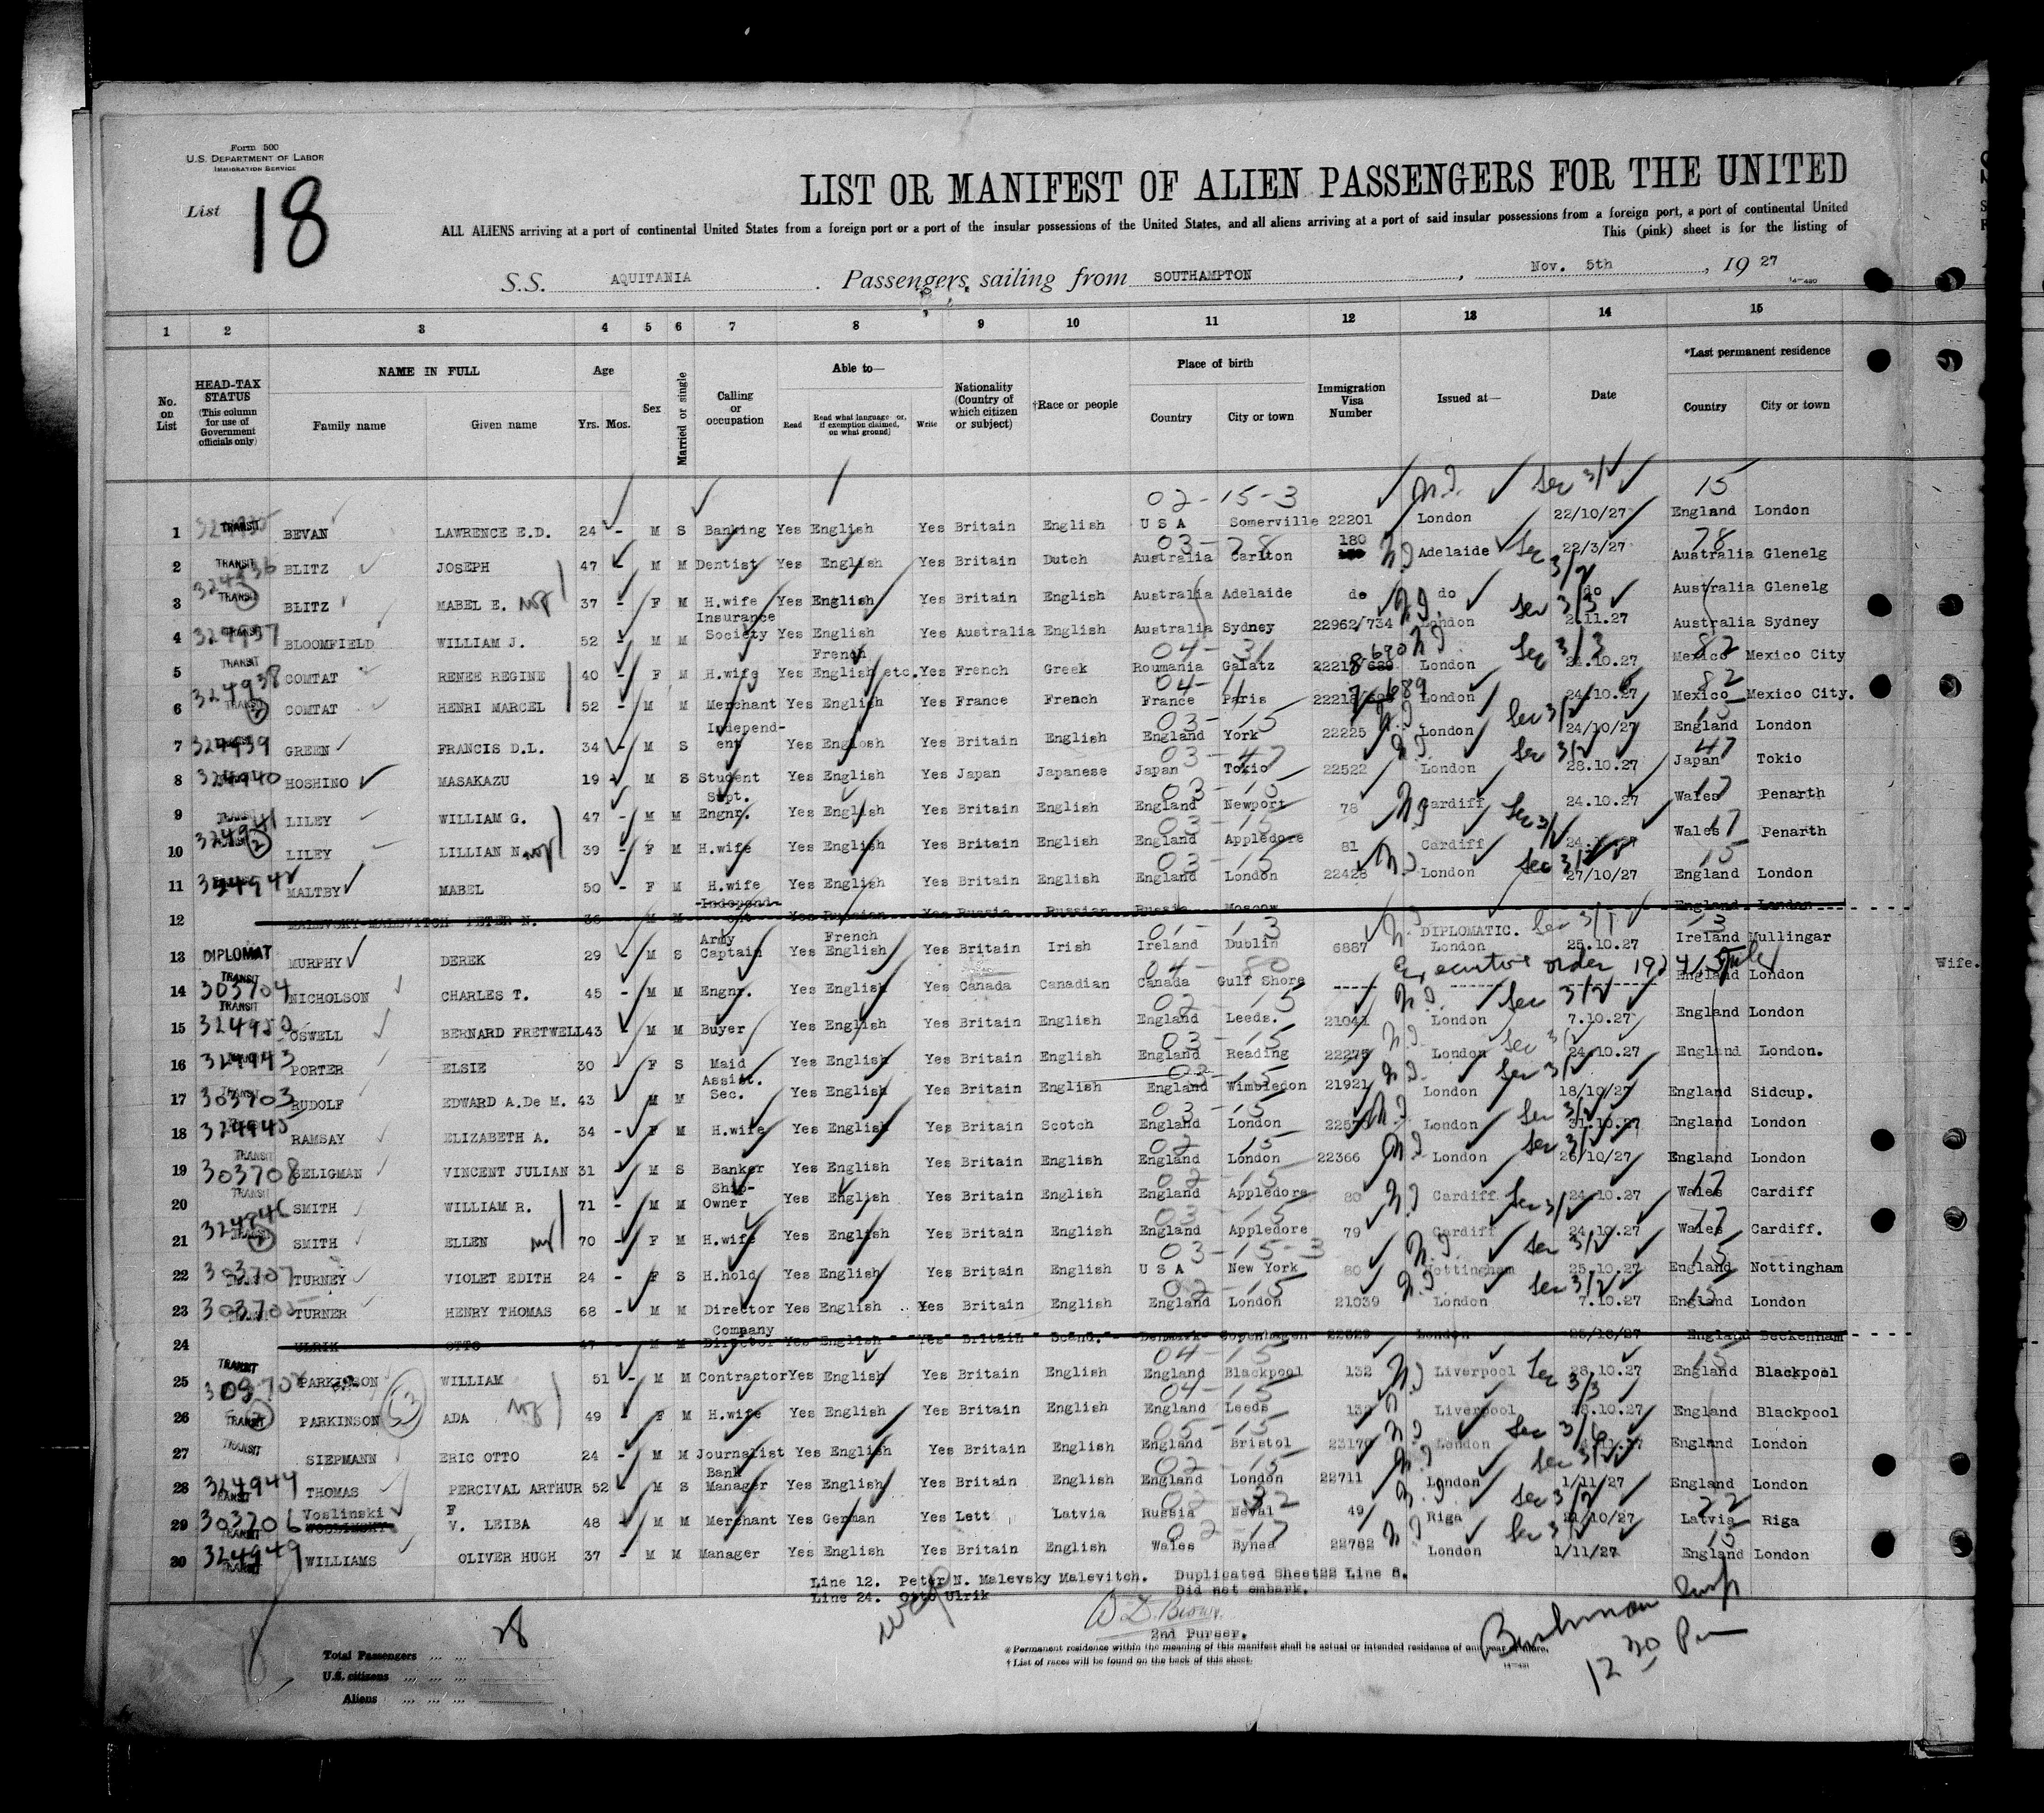 Form 500
U.S. DEPARTMENT OF LABOR
IMMIGRATION SERVICE
List 18
LIST OR MANIFEST OF ALIEN PASSENGERS FOR THE UNITED
ALL ALIENS arriving at a port of continental United States from a foreign port or a port of the insular possessions of the United States, and all aliens arriving at a port of said insular possessions from a foreign port, a port of continental United
This (pink) sheet is for the listing of
S.S. AQUITANIA Passengers sailing from SOUTHAMPTON, Nov. 5th, 19 27
1 2 3 4 5 6 7 8 9 10 11 12 13 14 15
No. on List
HEAD-TAX STATUS (This column for use of Government officials only)
NAME IN FULL Family name Given name
Age Yrs. Mos.
Sex
Married or single
Calling or occupation
Able to— Read Read what language or, if exemption claimed, on what ground] Write
Nationality (Country of which citizen or subject)
†Race or people
Place of birth Country City or town
Immigration Visa Number
Issued at—
Date
*Last permanent residence Country City or town
02-15-3 Sec 3/2 15
1 TRANSIT BEVAN LAWRENCE E.D. 24 - M S Banking Yes English Yes Britain English U S A Somerville 22201 London 22/10/27 England London
2 TRANSIT BLITZ JOSEPH 47 M M Dentist Yes English Yes Britain Dutch Australia Carlton 180 Adelaide 22/3/27 Australia Glenelg
3 TRANSIT BLITZ MABEL E. 37 - F M H.wife Yes English Yes Britain English Australia Adelaide do do do Australia Glenelg
4 324937 BLOOMFIELD WILLIAM J. 52 - M M Insurance Society Yes English Yes Australia English Australia Sydney 22962/734 London 2.11.27 Australia Sydney
5 TRANSIT COMTAT RENEE REGINE 40 - F M H.wife Yes French English etc. Yes French Greek Roumania Galatz London 24.10.27 Mexico Mexico City
6 324938 COMTAT HENRI MARCEL 52 - M M Merchant Yes English Yes France French France Paris London 24.10.27 Mexico Mexico City.
7 324939 GREEN FRANCIS D.L. 34 - M S Independ-ent Yes Englosh Yes Britain English England York 22225 London 24/10/27 England London
8 324940 HOSHINO MASAKAZU 19 - M S Student Yes English Yes Japan Japanese Japan Tokio 22522 London 28.10.27 Japan Tokio
9 324941 LILEY WILLIAM G. 47 - M M Supt. Engnr. Yes English Yes Britain English England Newport 78 Cardiff 24.10.27 Wales Penarth
10 LILEY LILLIAN N. 39 - F M H.wife Yes English Yes Britain English England Appledore 81 Cardiff Wales Penarth
11 324942 MALTBY MABEL 50 - F M H.wife Yes English Yes Britain English England London 22428 London 27/10/27 England London
12 MALEVSKY-MALEVITCH PETER N. 36 M M Independ-ent Yes Russian Yes Russia Russian Russia Moscow England London
13 DIPLOMAT MURPHY DEREK 29 - M S Army Captain Yes French English Yes Britain Irish Ireland Dublin 6887 DIPLOMATIC. London 25.10.27 Ireland Mullingar
Executive order
14 TRANSIT 303704 NICHOLSON CHARLES T. 45 - M M Engnr. Yes English Yes Canada Canadian Canada Gulf Shore ----- England London
15 TRANSIT 324950 OSWELL BERNARD FRETWELL 43 M M Buyer Yes English Yes Britain English England Leeds. 21041 London 7.10.27 England London
16 324943 PORTER ELSIE 30 - F S Maid Yes English Yes Britain English England Reading 22275 London 24.10.27 England London.
17 303703 RUDOLF EDWARD A.De M. 43 M M Assist. Sec. Yes English Yes Britain English England Wimbledon 21921 London 18/10/27 England Sidcup.
18 324945 RAMSAY ELIZABETH A. 34 - F M H.wife Yes English Yes Britain Scotch England London London 31.10.27 England London
19 TRANSIT 303708 SELIGMAN VINCENT JULIAN 31 M S Banker Yes English Yes Britain English England London 22366 London 26/10/27 England London
20 TRANSIT SMITH WILLIAM R. 71 - M M Ship-Owner Yes English Yes Britain English England Appledore 80 Cardiff 24.10.27 Wales Cardiff
21 324946 SMITH ELLEN 70 - F M H.wife Yes English Yes Britain English England Appledore 79 Cardiff 24.10.27 Wales Cardiff.
22 303707 TURNEY VIOLET EDITH 24 - F S H.hold Yes English Yes Britain English U S A New York 80 Nottingham 25.10.27 England Nottingham
23 303705 TURNER HENRY THOMAS 68 - M M Director Yes English Yes Britain English England London 21039 London 7.10.27 England London
24 ULRIK OTTO 47 M M Company Director Yes English Yes Britain Scand. Denmark Copenhagen 22629 London 25/10/27 England Beckenham
25 TRANSIT PARKINSON WILLIAM 51 - M M Contractor Yes English Yes Britain English England Blackpool 132 Liverpool 28.10.27 England Blackpool
26 TRANSIT PARKINSON ADA 49 - F M H.wife Yes English Yes Britain English England Leeds Liverpool 28.10.27 England Blackpool
27 TRANSIT SIEPMANN ERIC OTTO 24 - M M Journalist Yes English Yes Britain English England Bristol 23170 London England London
28 324944 TRANSIT THOMAS PERCIVAL ARTHUR 52 M S Bank Manager Yes English Yes Britain English England London 22711 London 1/11/27 England London
29 303706 Voslinski F V. LEIBA 48 - M M Merchant Yes German Yes Lett Latvia Russia Neval 49 Riga 21/10/27 Latvia Riga
30 324949 WILLIAMS OLIVER HUGH 37 - M M Manager Yes English Yes Britain English Wales Bynea 22782 London 1/11/27 England London
Line 12. Peter N. Malevsky Malevitch. Duplicated Sheet22 Line 8.
Line 24. Otto Ulrik Did not embark.
W. D. Brown.
2nd Purser.
28
Total Passengers
U.S. citizens
Aliens
* Permanent residence within the meaning of this manifest shall be actual or intended residence of one year or more.
† List of races will be found on the back of this sheet.
12 30 Pm
Wife.